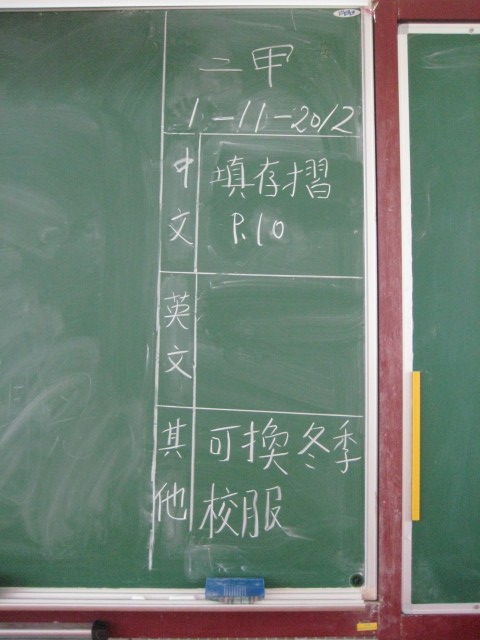 二甲
1-11-2012
中文
填存摺
P.10
英文
其他
可換冬季
校服